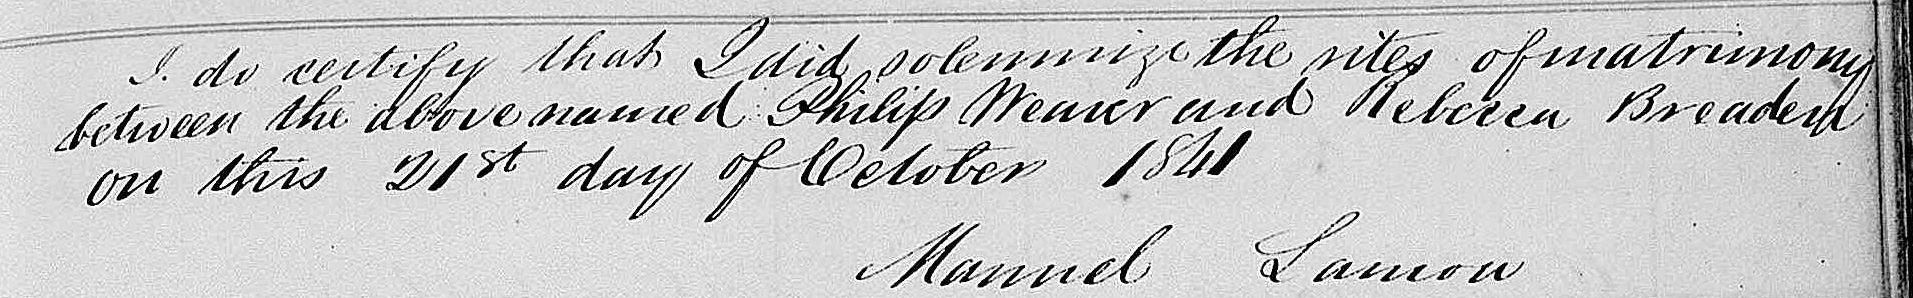 I. do certify that I did solemnize the rites of matrimony
between the above named Philip Weaver and Rebecca Breaden
on this 21st day of October 1841
Manuel Lamon